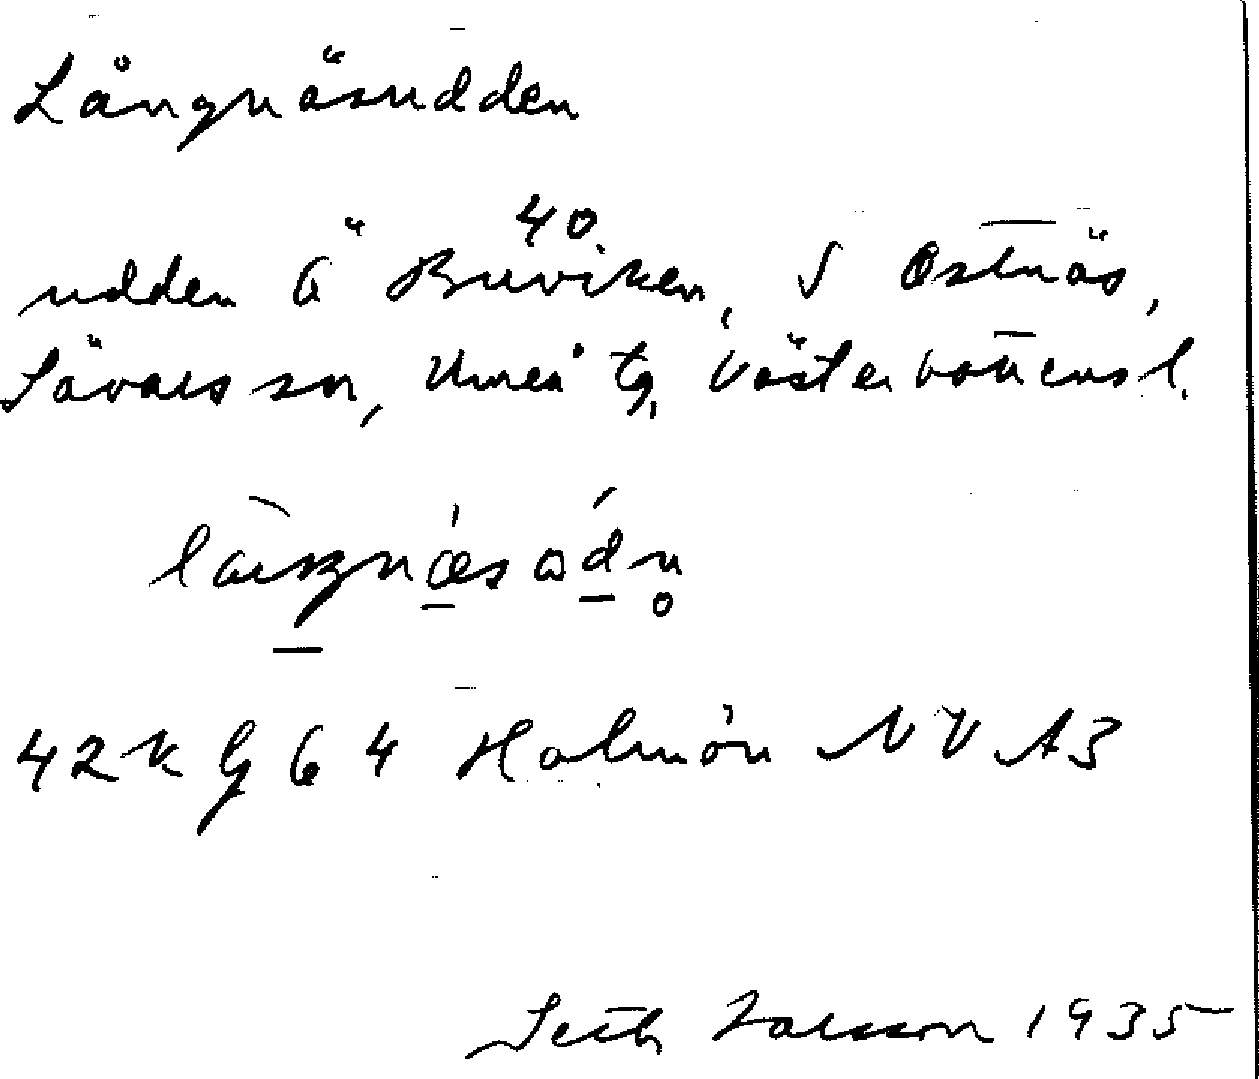 Långnäsudden
40
udden Ö Buviken, S Östnäs,
Sävars sn, Umeå tg, Västerbottens l.
42K G 6 4 Holmön NV A3
Seth Larsson 1935